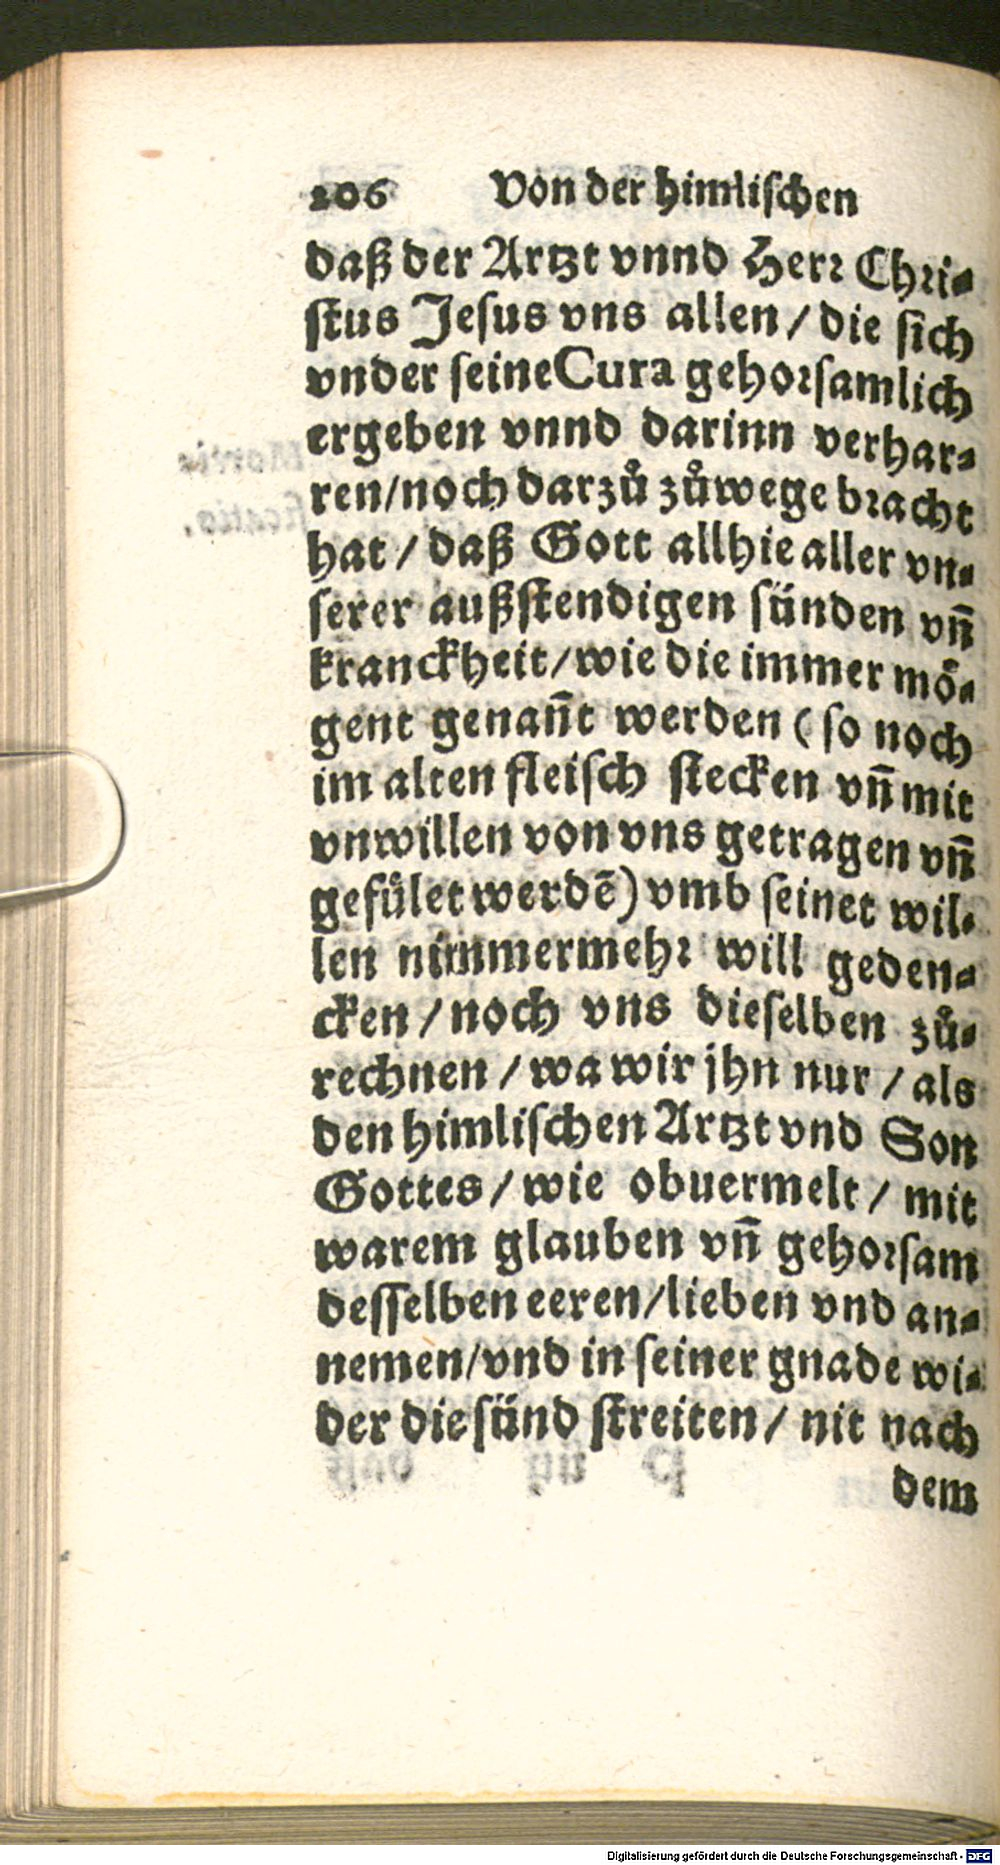 106 Von der himlischen
daß der Artzt vnnd Herr Chri-
stus Jesus vns allen / die sich
vnder seine Cura gehorsamlich
ergeben vnnd darinn verhar-
ren/noch darzů zůwege bracht
hat / daß Gott allhie aller vn-
serer außstendigen sünden vñ
kranckheit/wie die immer mö-
gent genañt werden ( so noch
im alten fleisch stecken vñ mit
vnwillen von vns getragen vñ
gefület werdē) vmb seinet wil-
len nimmermehr will geden-
cken / noch vns dieselben zů-
rechnen / wa wir jhn nur / als
den himlischen Artzt vnd Son
Gottes / wie obuermelt / mit
warem glauben vñ gehorsam
desselben eeren/lieben vnd an-
nemen/vnd in seiner gnade wi-
der die sünd streiten / nit nach
dem
Digitalisierung gefördert durch die Deutsche Forschungsgemeinschaft - DFG